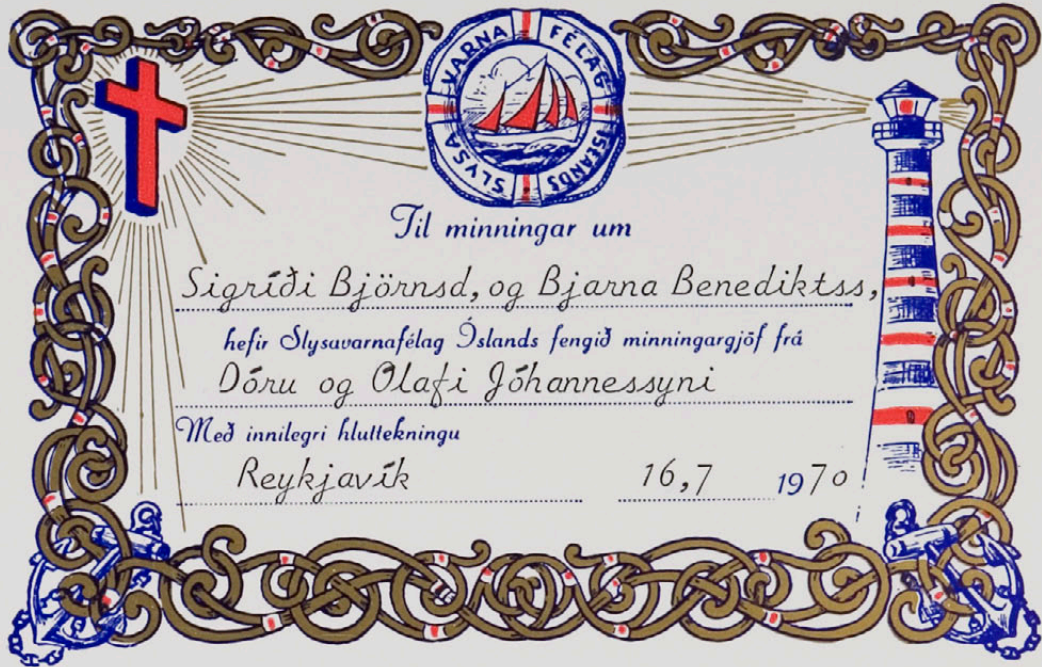 SLYSA VARNA FÉLAG ÍSLANDS
Til minningar um
Sigríði Björnsd, og Bjarna Benediktss,
hefir Slysavarnafélag Íslands fengið minningargjöf frá
Dóru og Olafi Jóhannessyni
Með innilegri hluttekningu
Reykjavík 16,7 1970